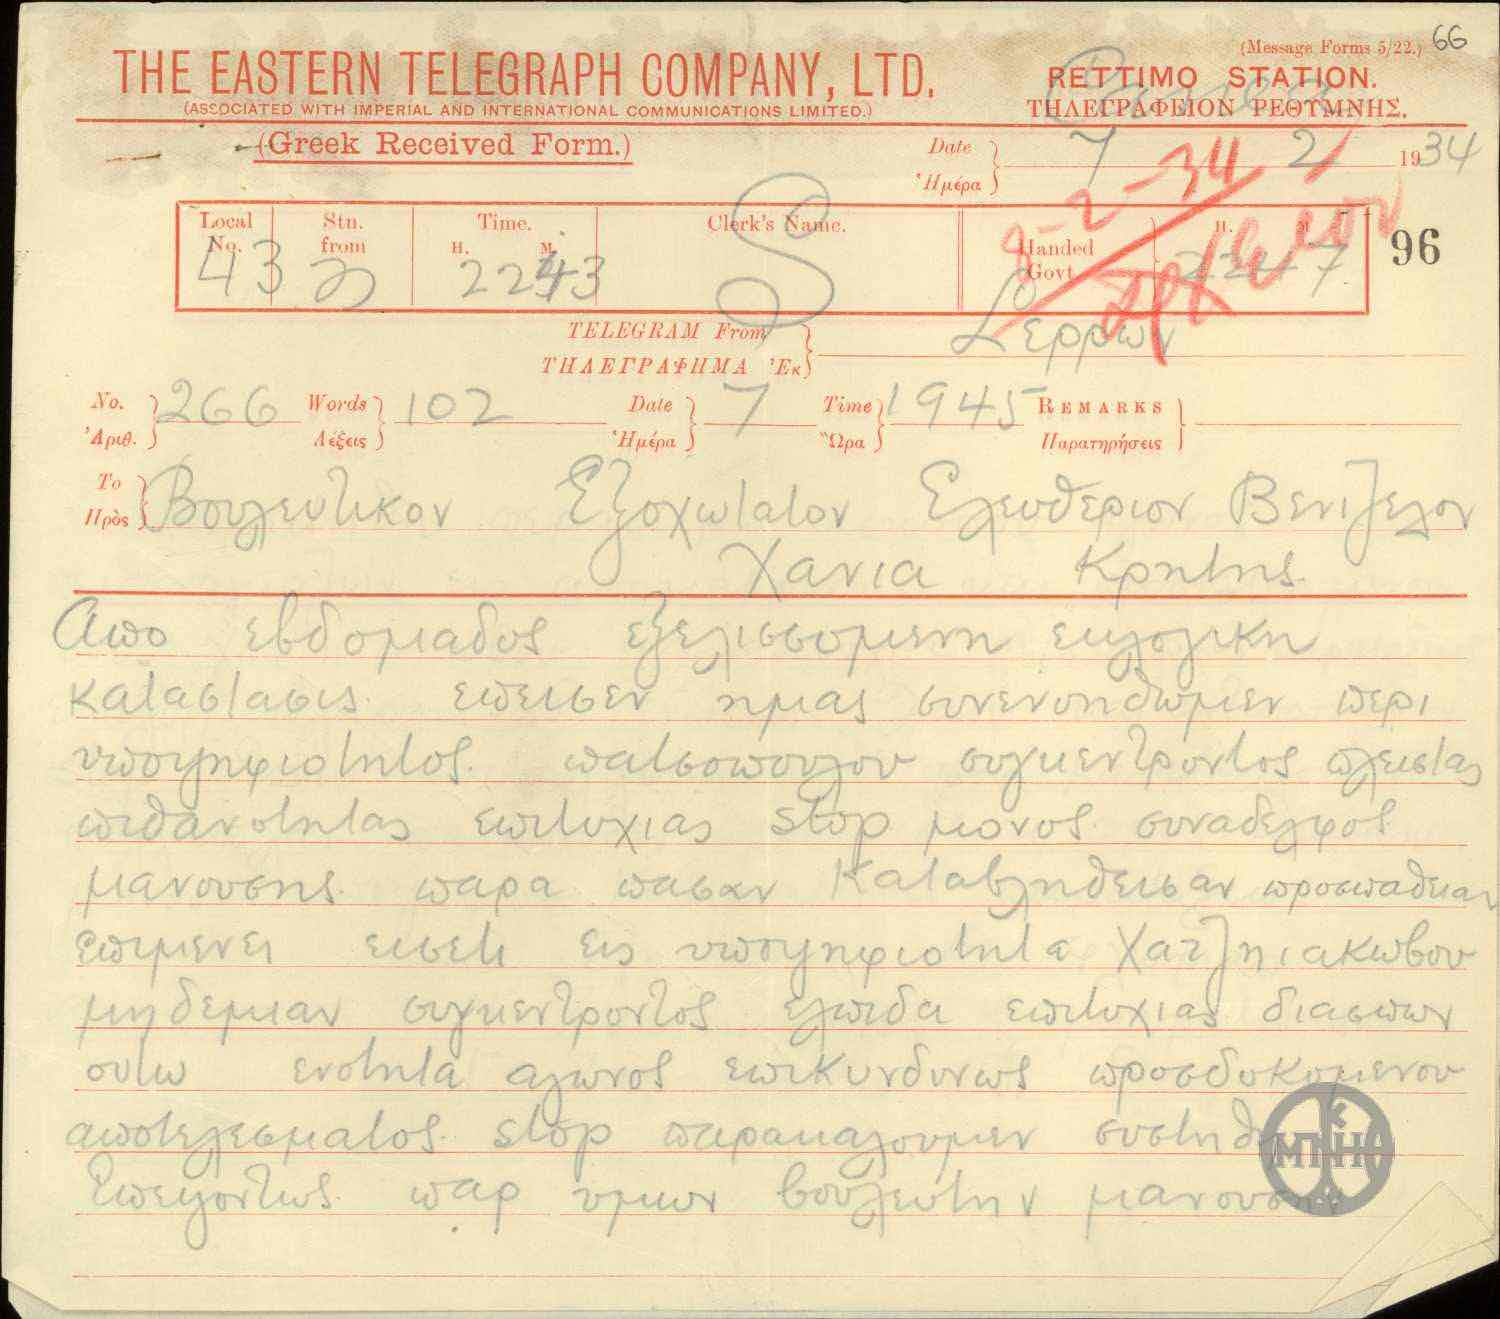 66
(Message Forms 5/22.)
THE EASTERN TELEGRAPH COMPANY, LTD.
(ASSOCIATED WITH IMPERIAL AND INTERNATIONAL COMMUNICATIONS LIMITED.)
RETTIMO STATION.
ΤΗΛΕΓΡΑΦΕΙΟΝ ΡΕΘΥΜΝΗΣ.
(Greek Received Form.)
Date Ἡμέρα 7 2 1934
8-2-34
Local No. 43 Stn. from Time. H. M. 2243 Clerk's Name. Handed Govt H. M. 96
TELEGRAM From
ΤΗΛΕΓΡΑΦΗΜΑ Ἐκ Σερρων
No. Ἀριθ. 266 Words Λέξεις 102 Date Ἡμέρα 7 Time Ὥρα 1945 REMARKS Παρατηρήσεις
To Πρὸς Βουλευτικον Εξοχωτατον Ελευθεριον Βενιζελον
Χανια Κρητης
Απο εβδομαδος εξελισσομενη εκλογικη
καταστασις επεισεν ημας συνενοηθωμεν περι
υποψηφιοτητος πατσοπουλου συγκεντροντος πλειστας
πιθανοτητας επιτυχιας stop μονος συναδελφος
μανουσης παρα πασαν καταβληθεισαν προσπαθειαν
επιμενει εισετι εις υποψηφιοτητα χατζηιακωβου
μηδεμιαν συγκεντροντος ελπιδα επιτυχιας διασπων
ουτω ενοτητα αγωνος επικυνδυνως προσδοκομενου
αποτελεσματος stop παρακαλουμεν συστηθη
επειγοντως παρ υμων βουλευτην μανουσην
ΜΠΗ